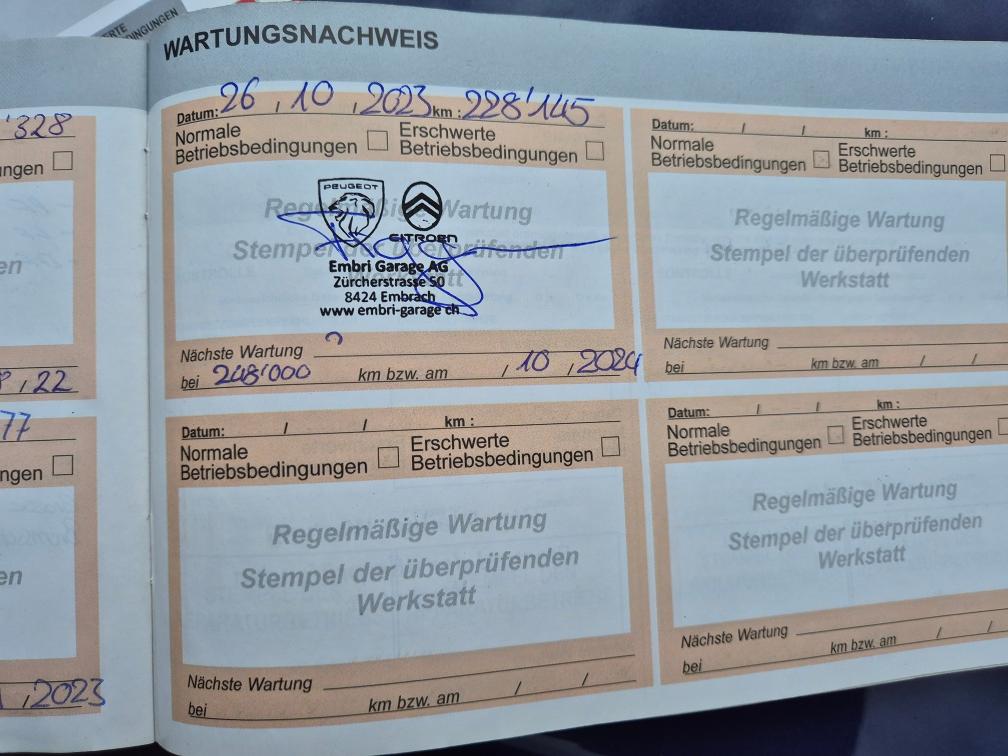 ERTE
DINGUNGEN
WARTUNGSNACHWEIS
'328
ngen
en
, 22
77
ngen
en
, 2023
Datum: 26 , 10 , 2023 km : 228'145
Normale Betriebsbedingungen
Erschwerte Betriebsbedingungen
Regelmäßige Wartung
Stempel der überprüfenden
Werkstatt
PEUGEOT
CITROËN
Embri Garage AG
Zürcherstrasse 50
8424 Embrach
www embri-garage ch
Nächste Wartung
bei 248'000 km bzw. am / 10 , 2024
Datum: / / km :
Normale Betriebsbedingungen
Erschwerte Betriebsbedingungen
Regelmäßige Wartung
Stempel der überprüfenden
Werkstatt
Nächste Wartung
bei km bzw. am / /
Datum: / / km :
Normale Betriebsbedingungen
Erschwerte Betriebsbedingungen
Regelmäßige Wartung
Stempel der überprüfenden
Werkstatt
Nächste Wartung
bei km bzw. am / /
Datum: / / km :
Normale Betriebsbedingungen
Erschwerte Betriebsbedingungen
Regelmäßige Wartung
Stempel der überprüfenden
Werkstatt
Nächste Wartung
bei km bzw. am / /